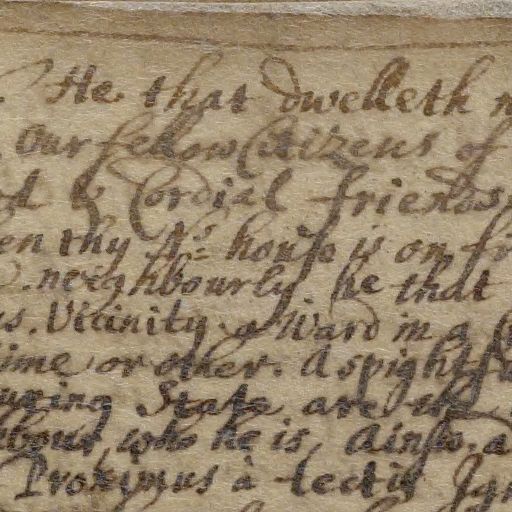 He that dwelleth n
Our fellow Citizens of
& Cordial friends
en thy house is on fi
neighbourly he that
Vicinity. a Ward in a
ime or other. A spightf
State are the
bour, who he is, Ainsw. a
Proximus à tectis Ign